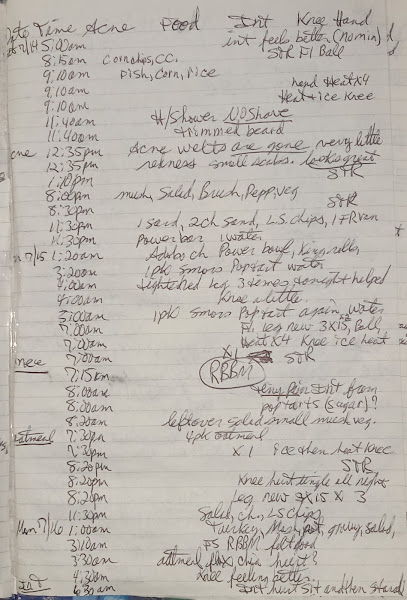 Date Time Acne Food Int Knee Hand
7/14 5:00am int feels better (no min)
8:15am Corn chips, CC. STR F1 Ball
9:10am Fish, Corn, rice
9:10am hand Heat X4
9:10am Heat + ice Knee
11:40am H/Shower NO Shave
11:40am trimmed beard
12:35pm Acne welts are gone, very little
12:35pm redness small scabs. looks great
1:10pm STR
8:00pm mush, Salad, Pepp, veg
8:30pm STR
11:30pm 1 sard, 2 ch sand, L.S. chips, 1 FR van
11:30pm Power bar 1 water
7/15 1:20am ch Power bowl, King rolls
3:20am 1 pk smors Poptart water
4:00am tightened leg 3 times tonight + helped
4:00am Knee a little.
5:00am 1 pk smors Poptart again, water
7:00am F1, leg new 3X15, Ball,
7:00am Heat X4 Knee ice heat
7:00am X1 STR
7:15am RBBM
8:00am Pain Int from
8:00am poptarts (sugar)?
8:20am leftover salad small mush veg.
oatmeal 7:30pm 4 pk oatmeal
7:30pm X1 ice then heat Knee
8:20pm STR
8:20pm Knee hurt all night
8:20pm leg new 3X15 X 3
11:30pm Salad, ch, LS chips,
Mon. 7/16 1:00am Turkey, Mash, pot, gravy, salad,
3:10am FS RBBM felt good
3:30am oatmeal flax, chia hurt?
4:30am Knee feeling better
Int 6:30am Int hurt sit and then stand